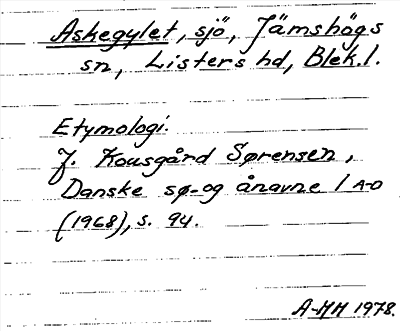 Askegylet, sjö, Jämshögs
sn, Listers hd, Blek.l.
Etymologi.
J. Kousgård Sørensen,
Danske sø- og ånavne 1 A-D
(1968), s. 94.
A-HH 1978.